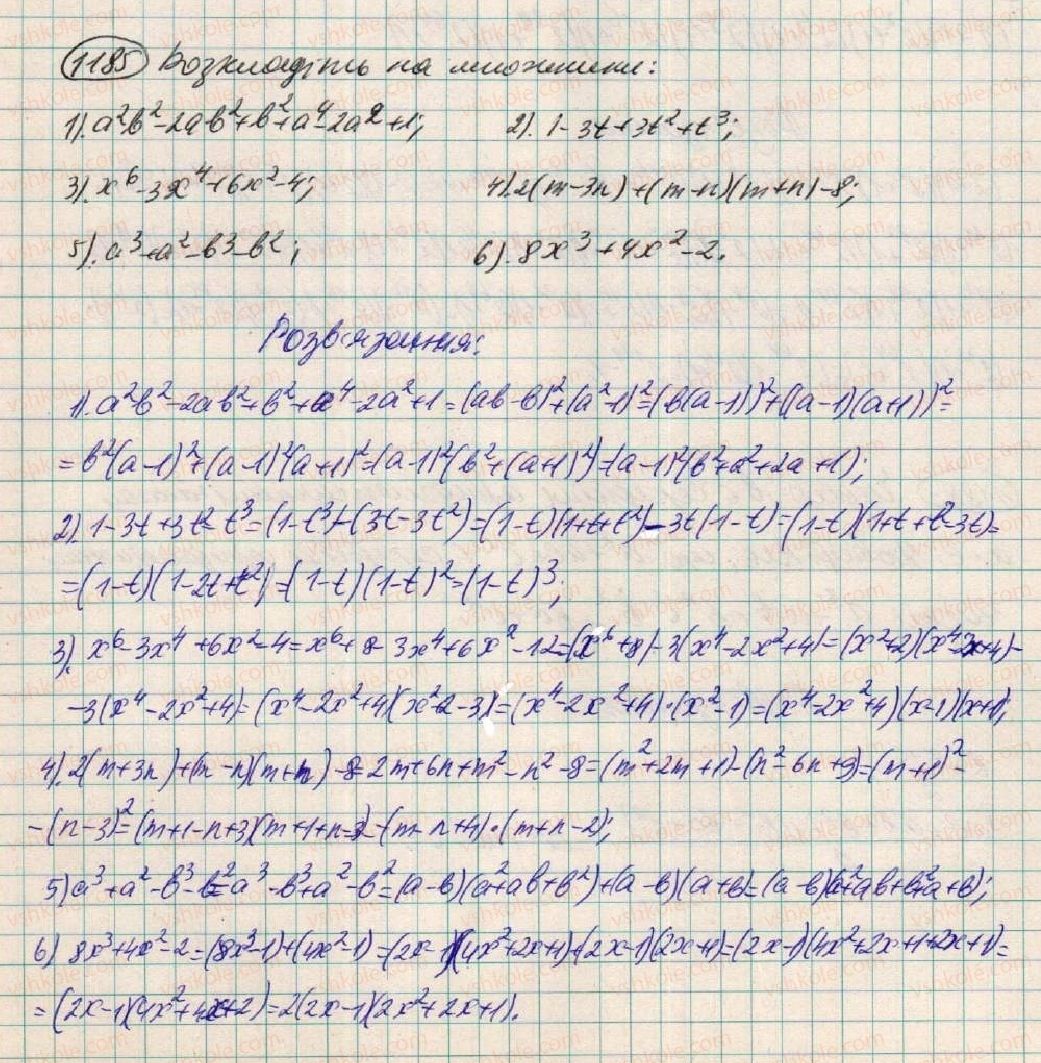 1185 Розкладіть на множники:
1). a²b²-2ab²+b²+a⁴-2a²+1; 2). 1-3t+3t²+t³;
3). x⁶-3x⁴+6x²-4; 4). 2(m-3n)+(m-n)(m+n)-8;
5). a³+a²-b³-b²; 6). 8x³+4x²-2.
Розв'язання:
1). a²b²-2ab²+b²+a⁴-2a²+1=(ab-b)²+(a²-1)²=(b(a-1))²+((a-1)(a+1))²=
=b²(a-1)²+(a-1)²(a+1)²=(a-1)²(b²+(a+1)²)=(a-1)²(b²+a²+2a+1);
2). 1-3t+3t²-t³=(1-t³)-(3t-3t²)=(1-t)(1+t+t²)-3t(1-t)=(1-t)(1+t+t²-3t)=
=(1-t)(1-2t+t²)=(1-t)(1-t)²=(1-t)³;
3). x⁶-3x⁴+6x²-4=x⁶+8-3x⁴+6x²-12=(x⁶+8)-3(x⁴-2x²+4)=(x²+2)(x⁴-2x+4)-
-3(x⁴-2x²+4)=(x⁴-2x²+4)(x²+2-3)=(x⁴-2x²+4)·(x²-1)=(x⁴-2x²+4)(x-1)(x+1);
4). 2(m+3n)+(m-n)(m+n)-8=2m+6n+m²-n²-8=(m²+2m+1)-(n²-6n+9)=(m+1)²-
-(n-3)²=(m+1-n+3)(m+1+n-3)=(m-n+4)·(m+n-2);
5) a³+a²-b³-b²=a³-b³+a²-b²=(a-b)(a²+ab+b²)+(a-b)(a+b)=(a-b)(a²+ab+b²+a+b);
6) 8x³+4x²-2=(8x³-1)+(4x²-1)=(2x-1)(4x²+2x+1)+(2x-1)(2x+1)=(2x-1)(4x²+2x+1+2x+1)=
=(2x-1)(4x²+4x+2)=2(2x-1)(2x²+2x+1).